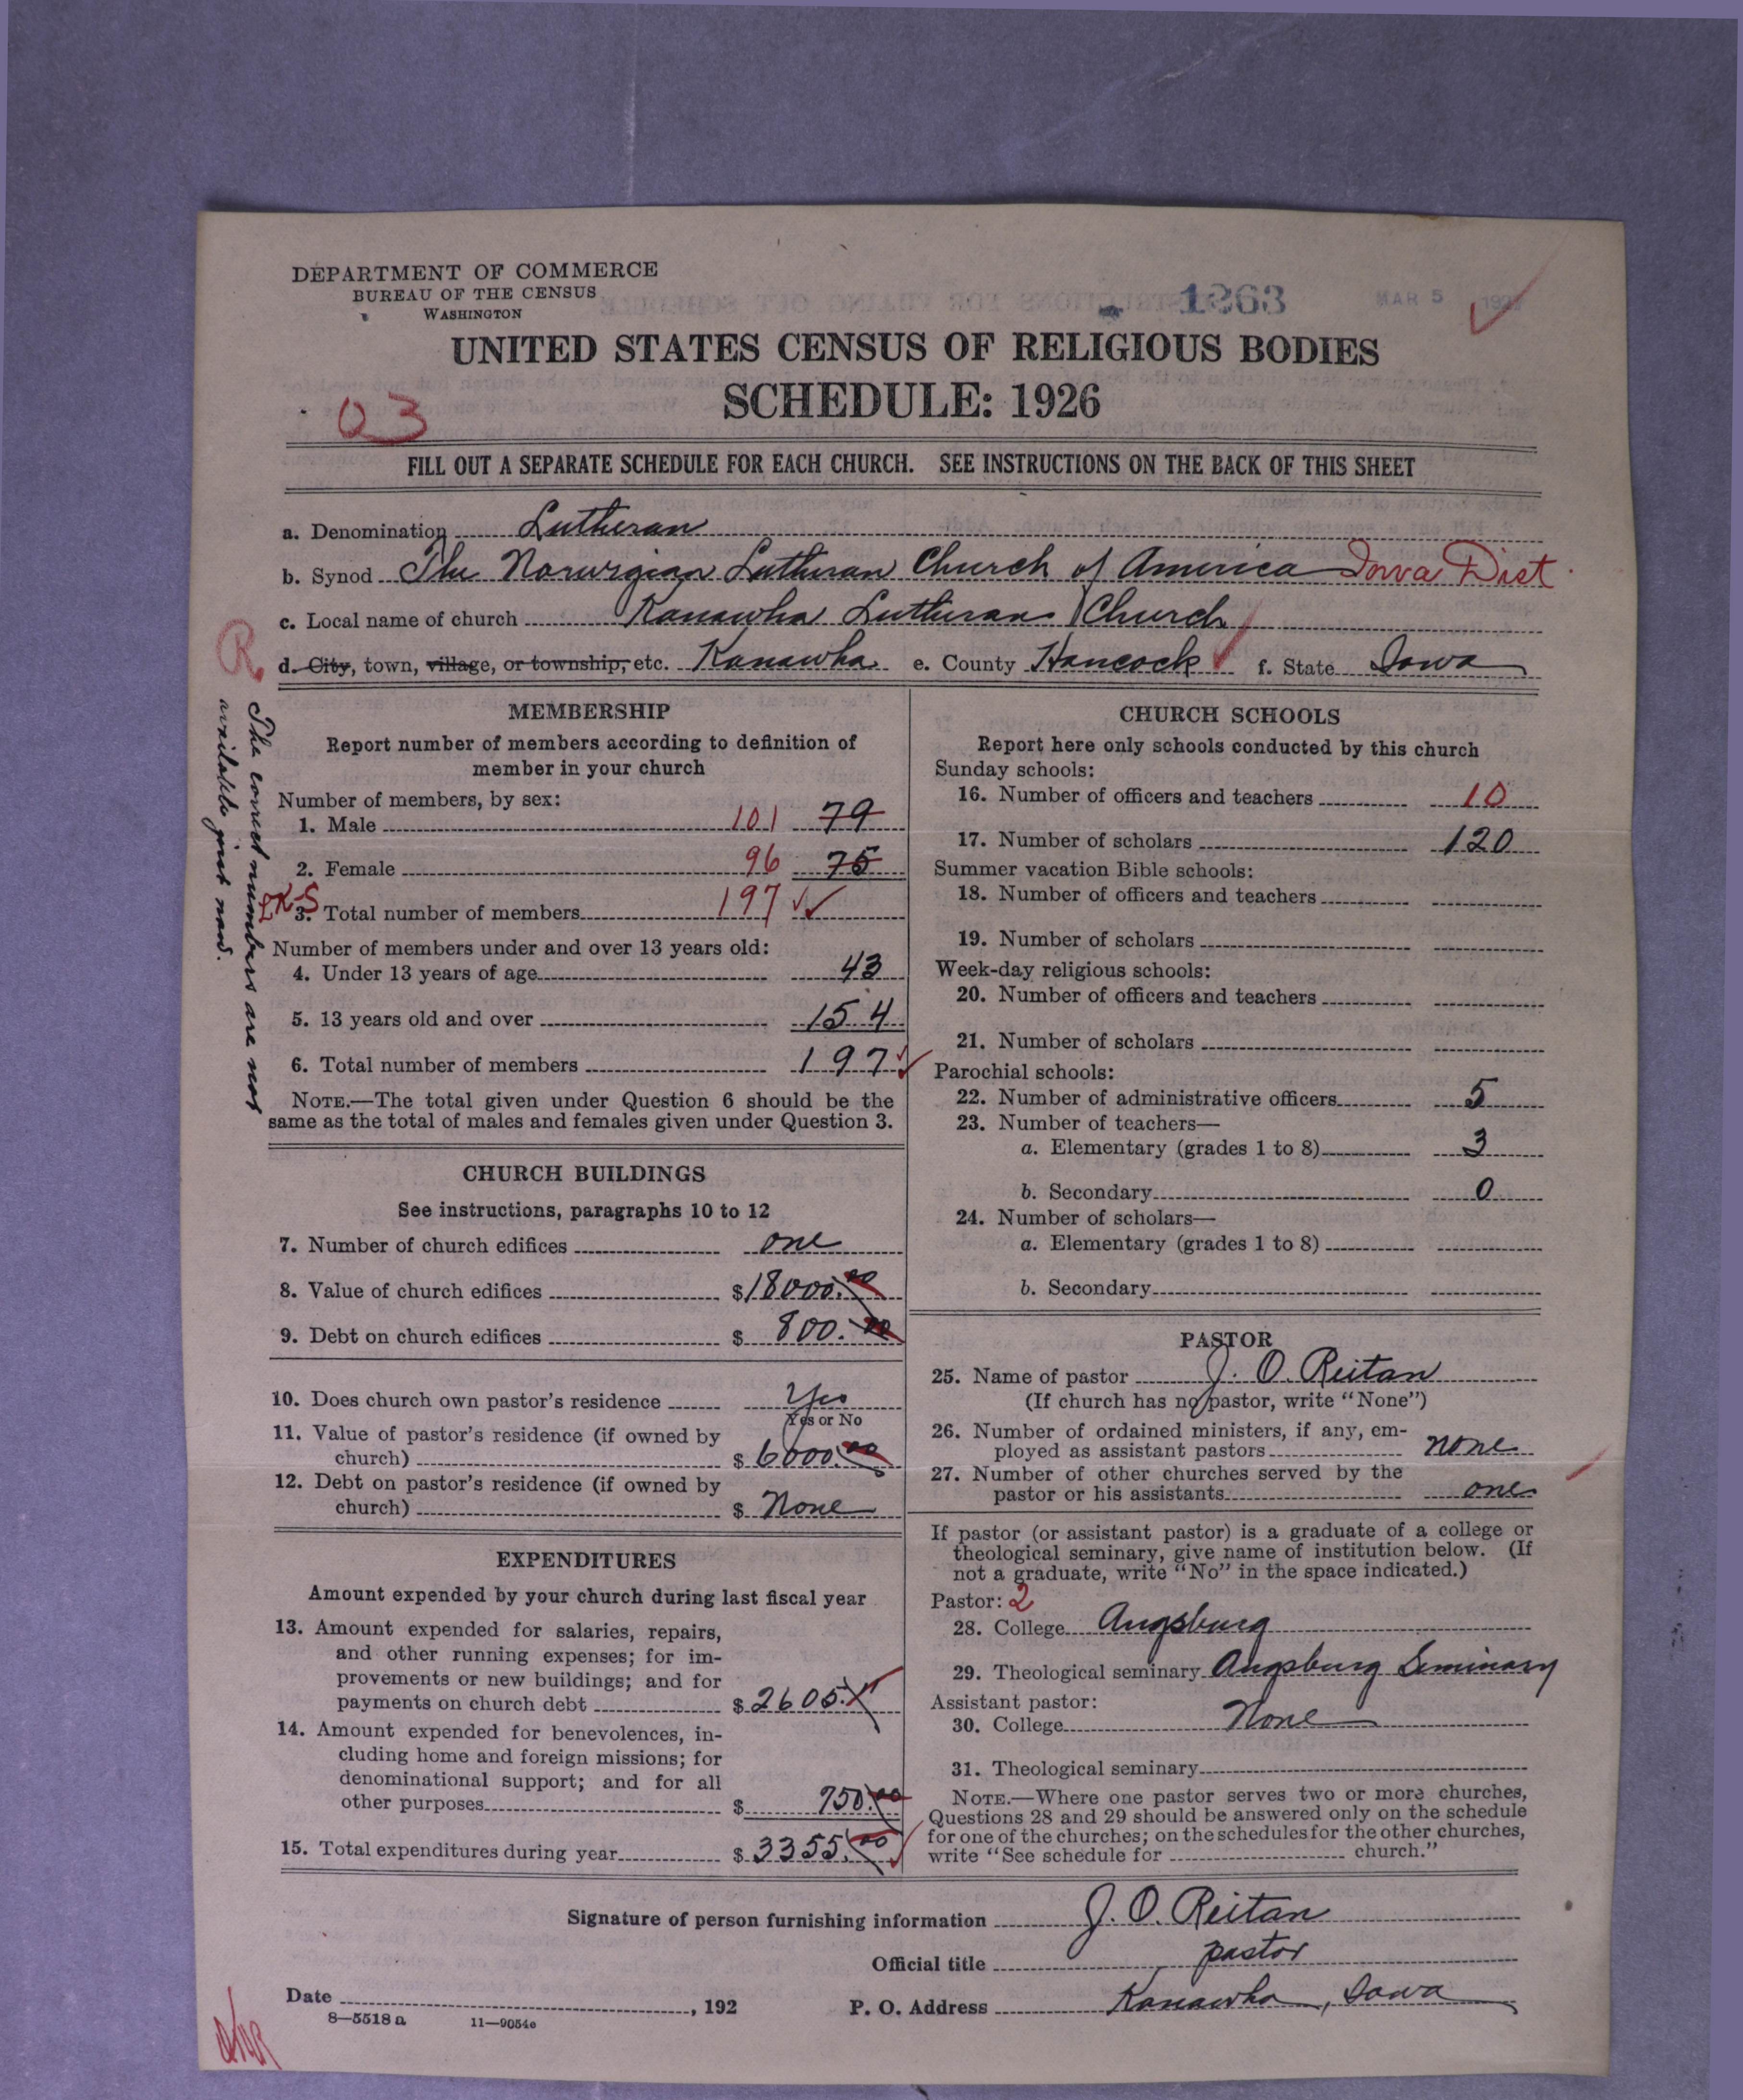 DEPARTMENT OF COMMERCE
BUREAU OF THE CENSUS
WASHINGTON
1263
MAR 5 192
UNITED STATES CENSUS OF RELIGIOUS BODIES
SCHEDULE: 1926
03
FILL OUT A SEPARATE SCHEDULE FOR EACH CHURCH. SEE INSTRUCTIONS ON THE BACK OF THIS SHEET
a. Denomination Lutheran
b. Synod The Norwegian Lutheran Church of America Iowa Dist.
c. Local name of church Kanawha Lutheran Church
R
d. City, town, village, or township, etc. Kanawha e. County Hancock f. State Iowa
The correct numbers are not
available just now.
MEMBERSHIP
Report number of members according to definition of
member in your church
Number of members, by sex:
1. Male 101 79
2. Female 96 75
LKS
3. Total number of members 197
Number of members under and over 13 years old:
4. Under 13 years of age 43
5. 13 years old and over 154
6. Total number of members 197
NOTE.—The total given under Question 6 should be the
same as the total of males and females given under Question 3.
CHURCH BUILDINGS
See instructions, paragraphs 10 to 12
7. Number of church edifices one
8. Value of church edifices $18000.00
9. Debt on church edifices $ 800.00
10. Does church own pastor's residence Yes
Yes or No
11. Value of pastor's residence (if owned by
church) $ 6000.00
12. Debt on pastor's residence (if owned by
church) $ None
EXPENDITURES
Amount expended by your church during last fiscal year
13. Amount expended for salaries, repairs,
and other running expenses; for im-
provements or new buildings; and for
payments on church debt $ 2605.
14. Amount expended for benevolences, in-
cluding home and foreign missions; for
denominational support; and for all
other purposes $ 750.00
15. Total expenditures during year $ 3355.00
CHURCH SCHOOLS
Report here only schools conducted by this church
Sunday schools:
16. Number of officers and teachers 10
17. Number of scholars 120
Summer vacation Bible schools:
18. Number of officers and teachers
19. Number of scholars
Week-day religious schools:
20. Number of officers and teachers
21. Number of scholars
Parochial schools:
22. Number of administrative officers 5
23. Number of teachers—
a. Elementary (grades 1 to 8) 3
b. Secondary 0
24. Number of scholars—
a. Elementary (grades 1 to 8)
b. Secondary
PASTOR
25. Name of pastor J. O. Reitan
(If church has no pastor, write "None")
26. Number of ordained ministers, if any, em-
ployed as assistant pastors none
27. Number of other churches served by the
pastor or his assistants one
If pastor (or assistant pastor) is a graduate of a college or
theological seminary, give name of institution below. (If
not a graduate, write "No" in the space indicated.)
Pastor: 2
28. College Augsburg
29. Theological seminary Augsburg Seminary
Assistant pastor:
30. College None
31. Theological seminary
NOTE.—Where one pastor serves two or more churches,
Questions 28 and 29 should be answered only on the schedule
for one of the churches; on the schedules for the other churches,
write "See schedule for church."
Signature of person furnishing information J. O. Reitan
Official title pastor
Date , 192 P. O. Address Kanawha, Iowa
8—5518 a 11—9054e